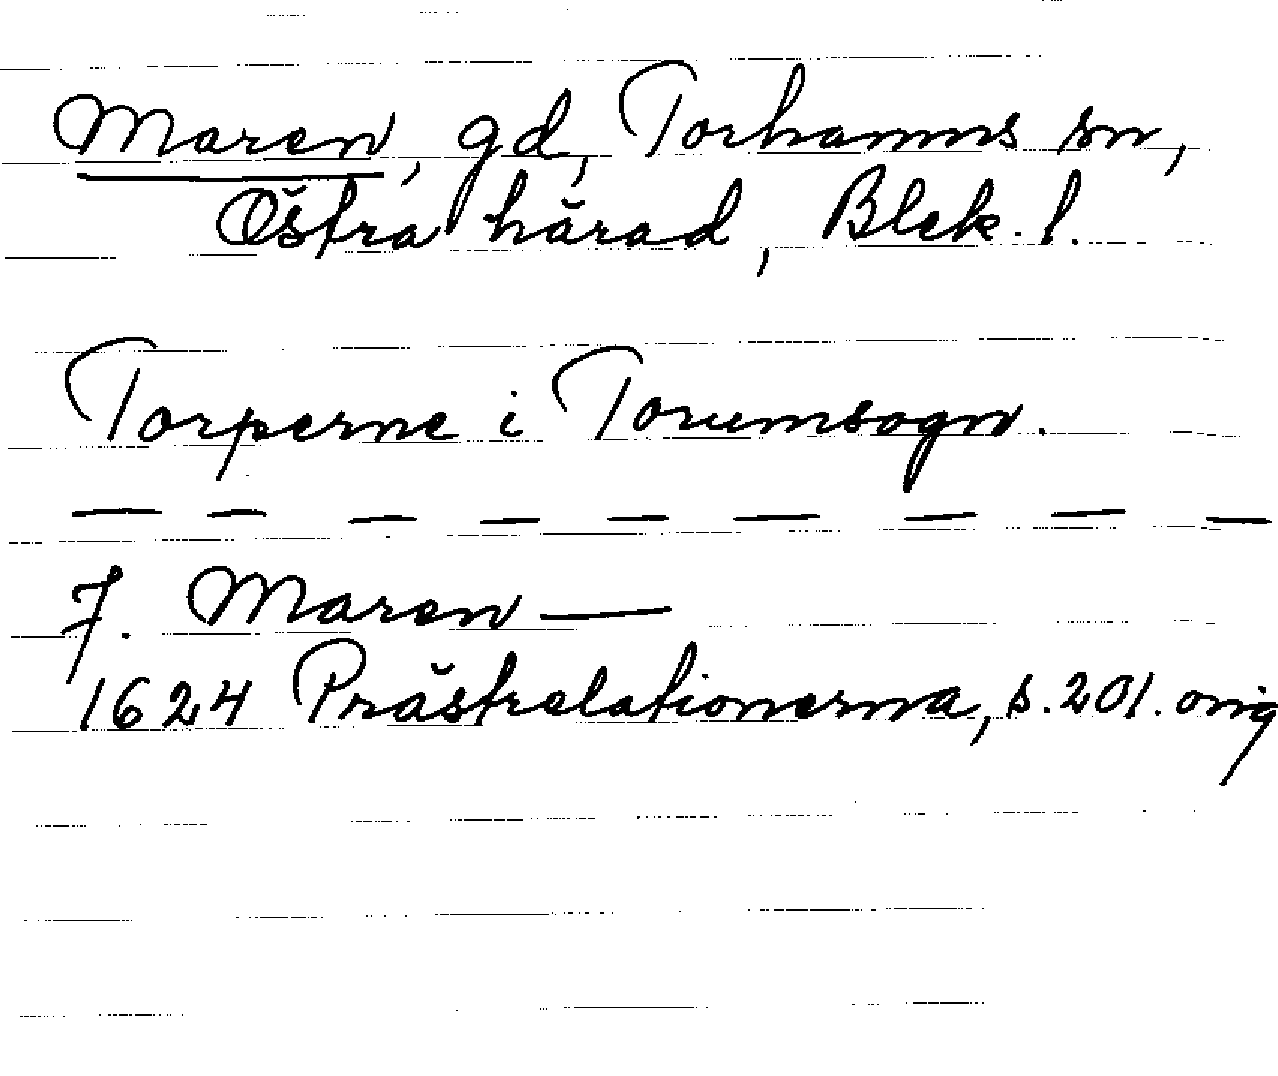 Maren, gd, Torhamns sn,
Östra härad, Blek. l.
Torperne i Torumsogn.
— — — — — — — — —
7. Maren —
1624 Prästrelationerna, s. 201. orig